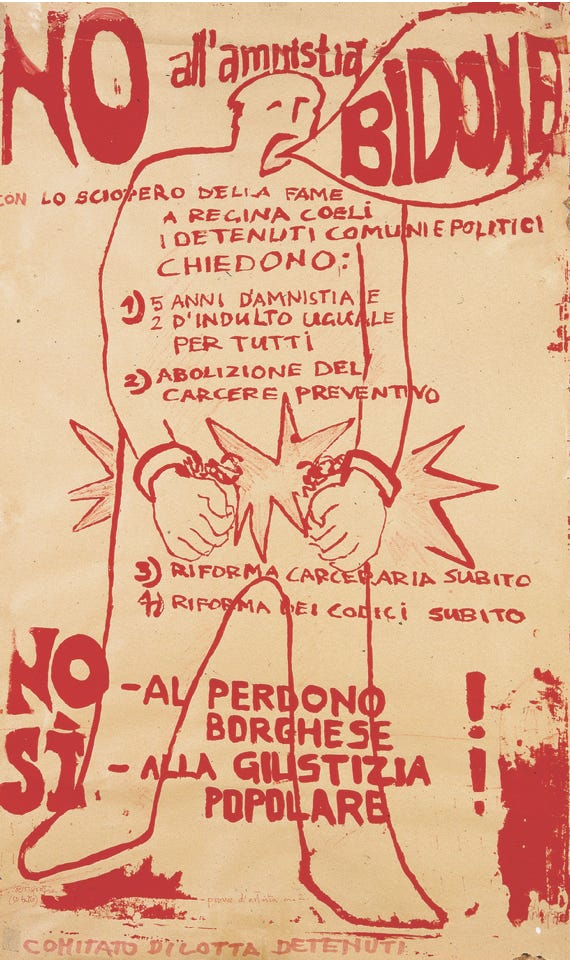 NO all'amnistia BIDONE
CON LO SCIOPERO DELLA FAME
A REGINA COELI
I DETENUTI COMUNI E POLITICI
CHIEDONO:
1) 5 ANNI D'AMNISTIA E
2 D'INDULTO UGUALE
PER TUTTI
2) ABOLIZIONE DEL
CARCERE PREVENTIVO
3) RIFORMA CARCERARIA SUBITO
4) RIFORMA DEI CODICI SUBITO
NO - AL PERDONO
BORGHESE !
SÌ - ALLA GIUSTIZIA
POPOLARE !
prova d'artista
COMITATO DI LOTTA DETENUTI